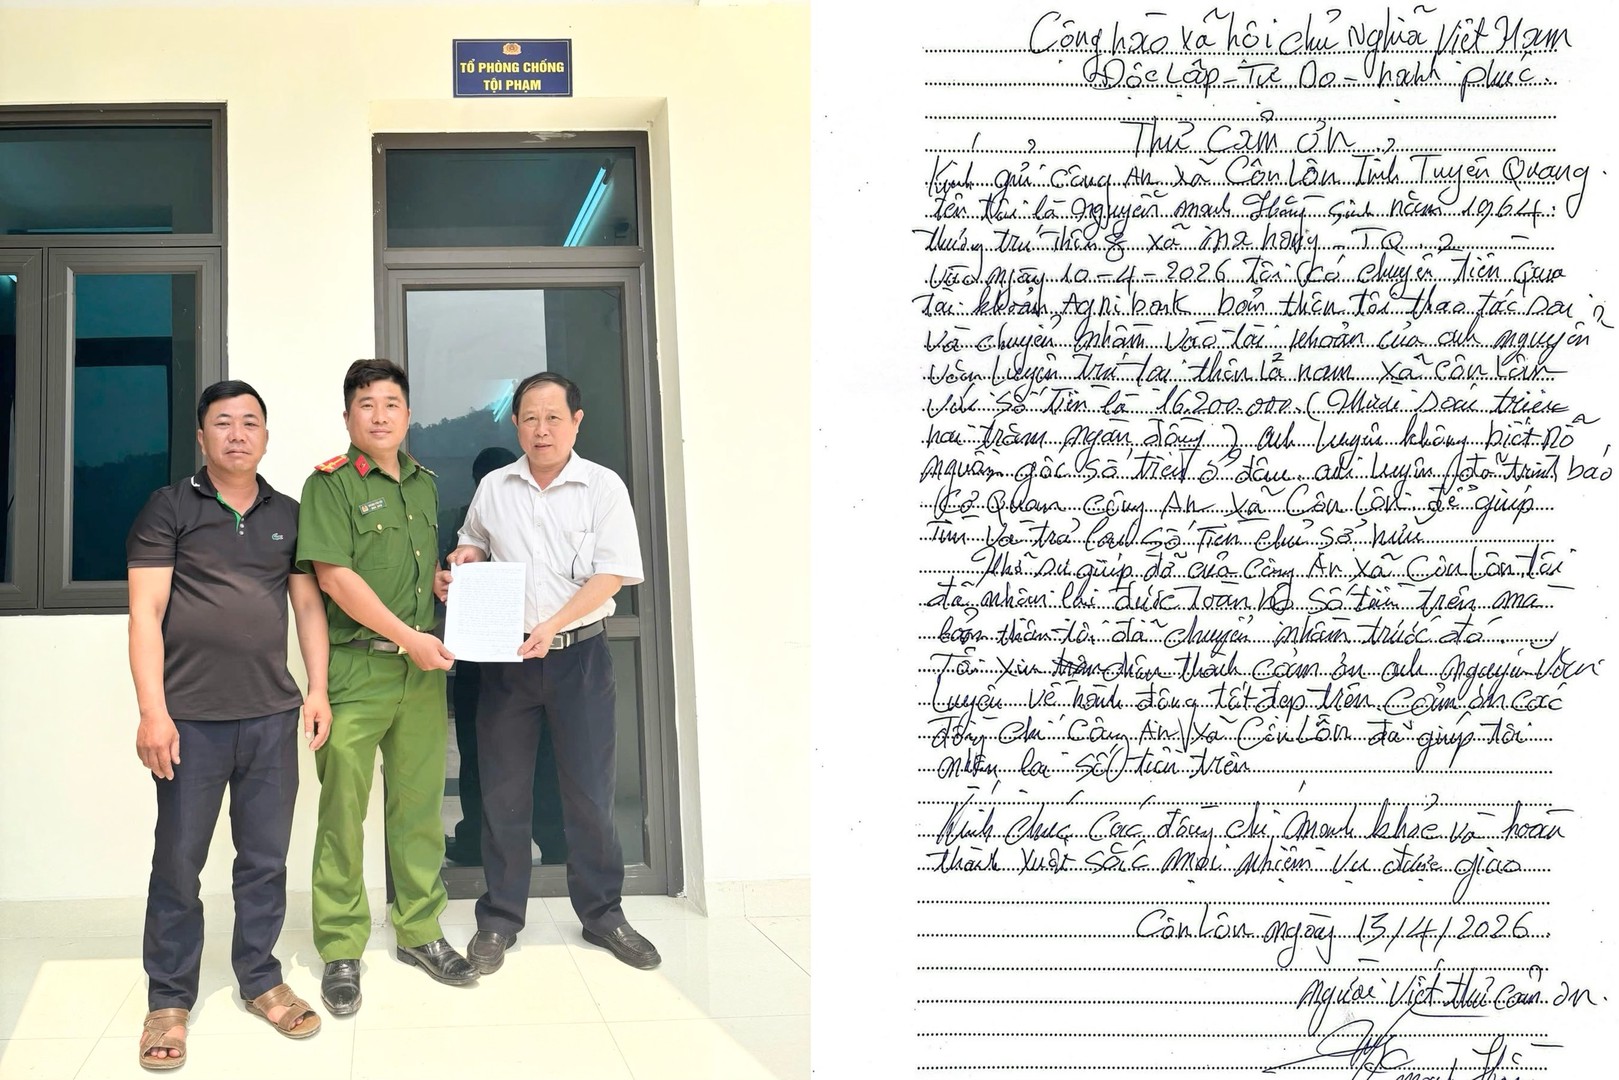 TỔ PHÒNG CHỐNG
TỘI PHẠM
Cộng hào xã hội chủ Nghĩa Việt Nam
Độc Lập - Tự Do - hạnh phúc
Thư Cảm ơn
Kính gửi Công An xã Côn Lôn Tỉnh Tuyên Quang
tên tôi là Nguyễn mạnh sinh năm 1964.
thường trú thôn 8 xã Na hang - TQ.
vào ngày 10-4-2026 tôi có chuyển tiền qua
tài khoản Agribank bản thân tôi thao tác sai
và chuyển nhầm vào tài khoản của anh nguyễn
văn Luyện trú tại thôn Lả nam xã Côn Lôn
với số tiền là 16.200.000. (Mười sáu triệu
hai trăm ngàn đồng) anh luyện không biết rõ
nguồn gốc số tiền ở đâu. anh luyện đã trình báo
Cơ Quan Công An Xã Côn Lôn để giúp
tìm và trả lại số tiền chủ sở hữu
Nhờ sự giúp đỡ của Công An Xã Côn Lôn tôi
đã nhận lại được toàn bộ số tiền trên mà
bản thân tôi đã chuyển nhầm trước đó.
Tôi xin chân thành cảm ơn anh Nguyễn Văn
Luyện về hành động tốt đẹp trên. Cảm ơn các
đồng chí Công An Xã Côn Lôn đã giúp tôi
nhận lại số tiền trên
Kính chúc các đồng chí mạnh khỏe và hoàn
thành xuất sắc mọi nhiệm vụ được giao
Côn Lôn ngày 13/4/2026
Người Viết thư cảm ơn.